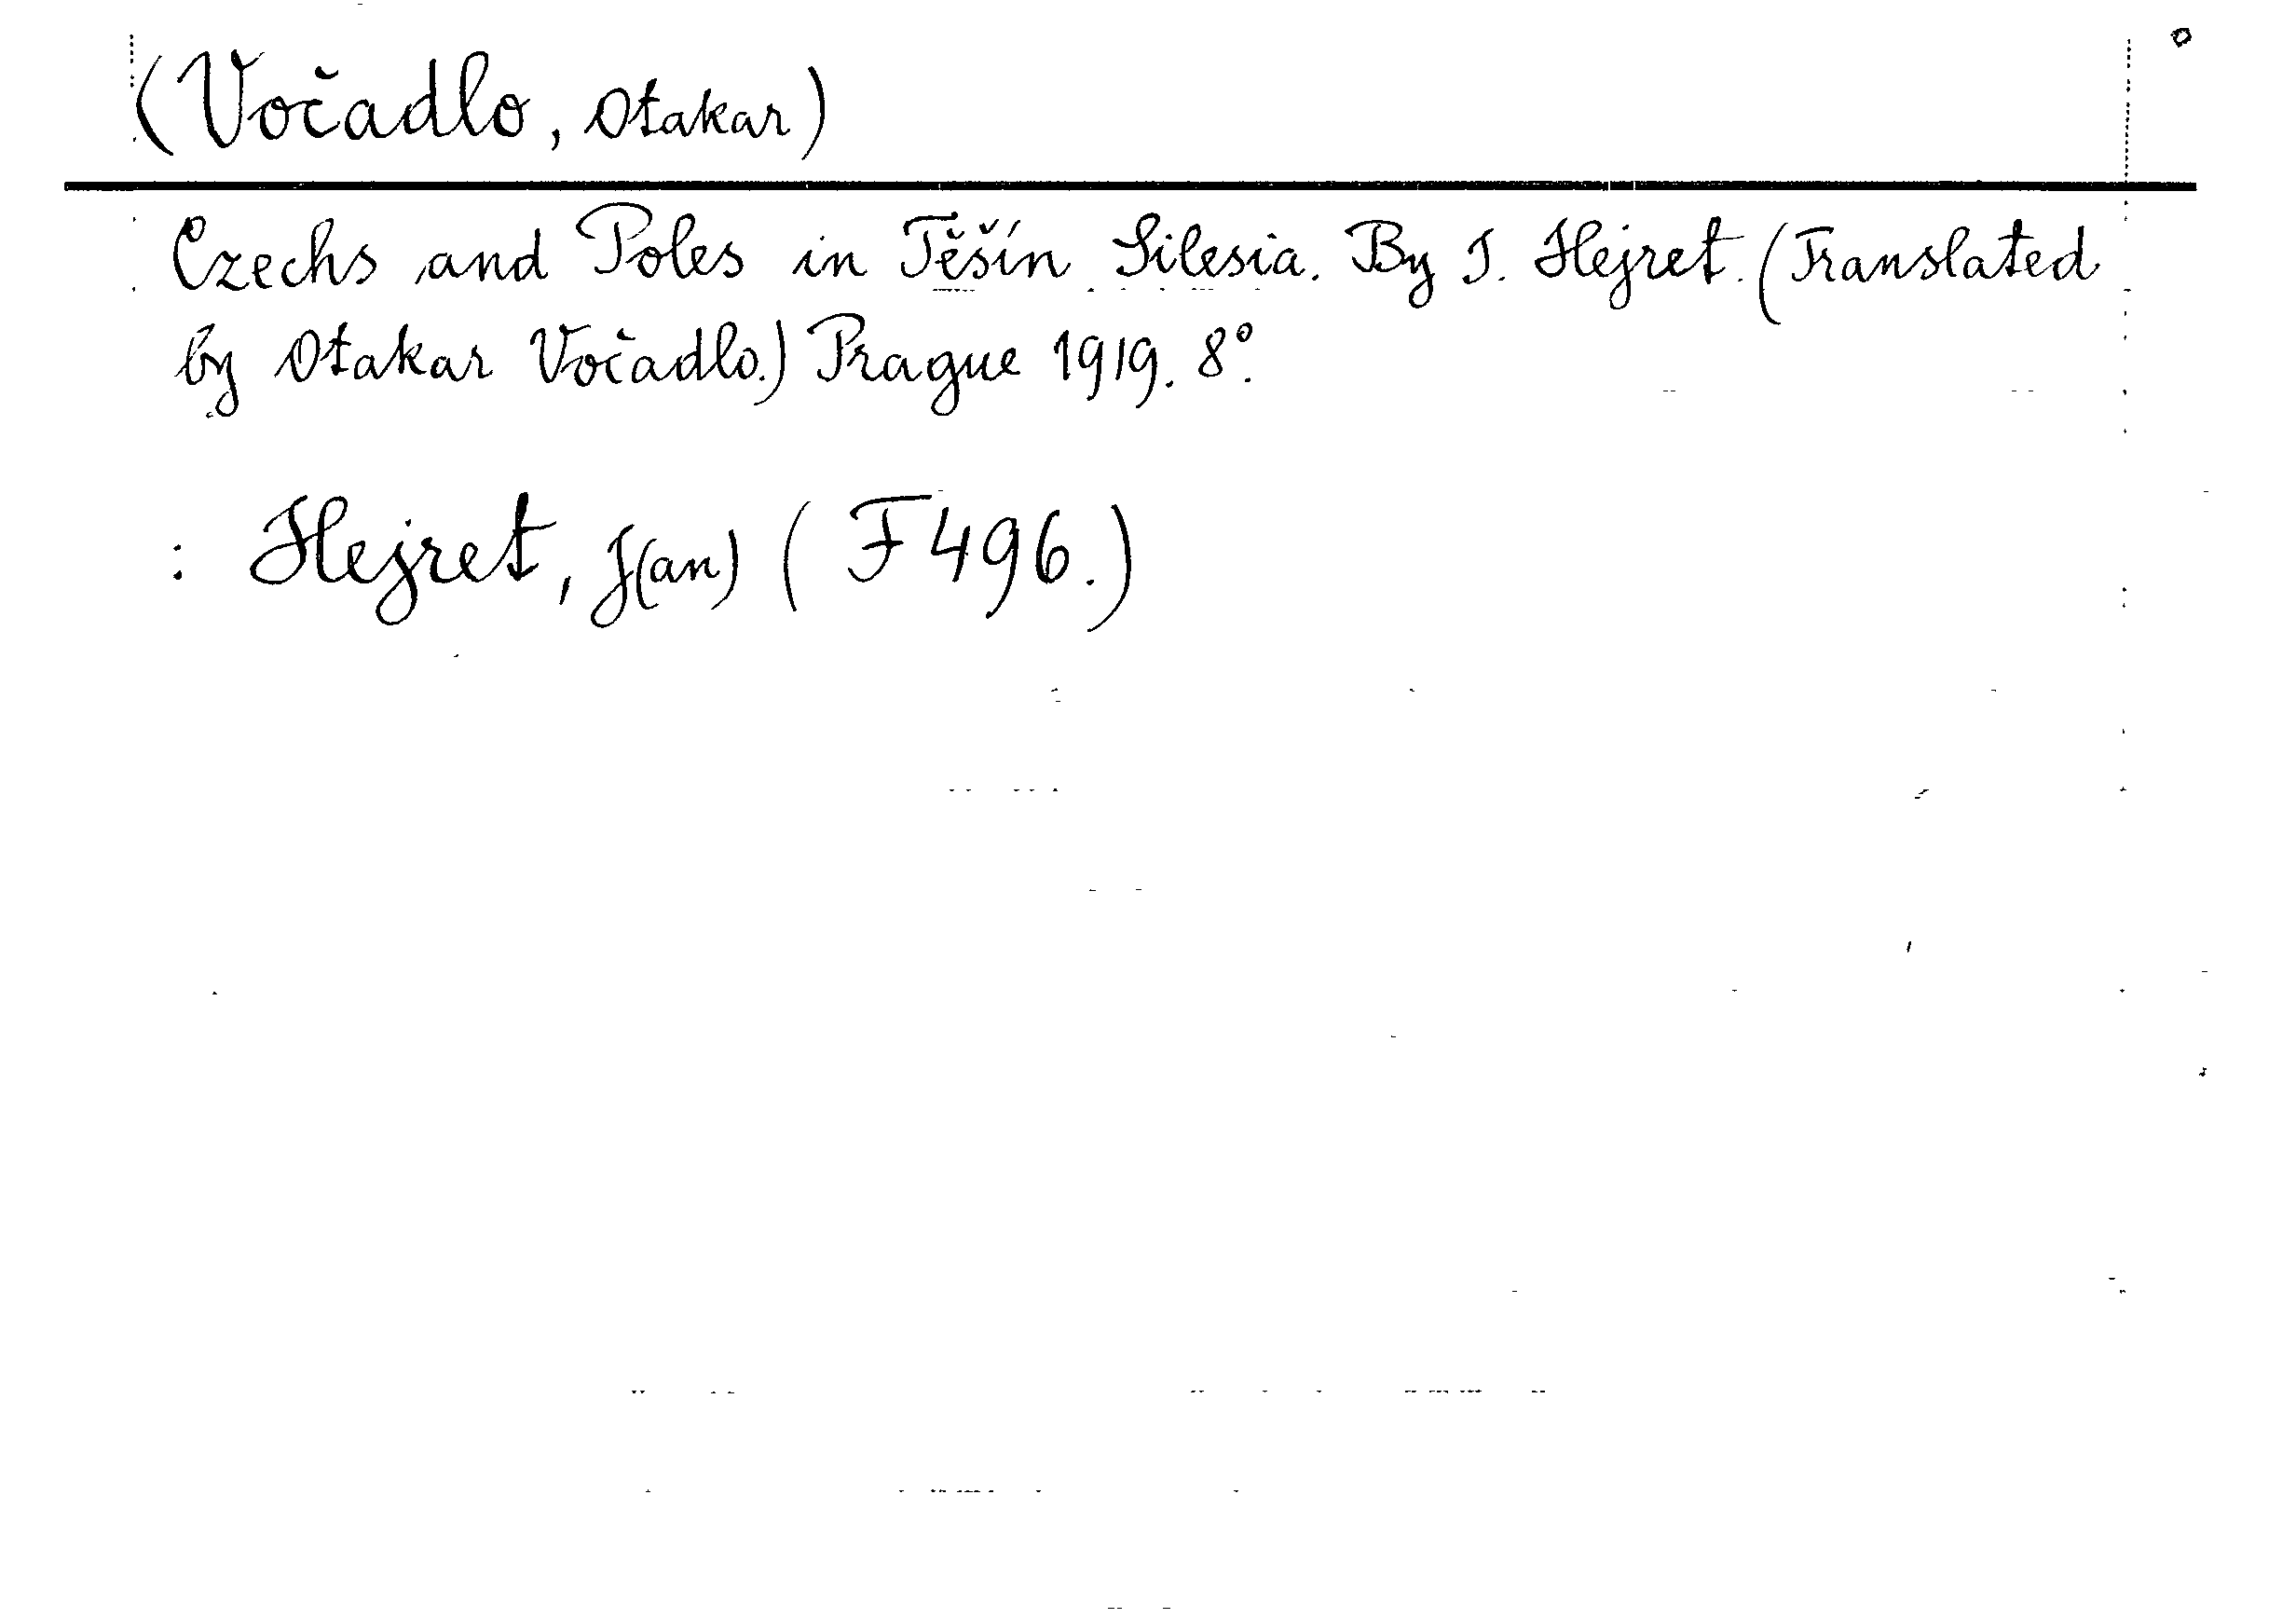 (Vočadlo, Otakar)
Czechs and Poles in Těšín Silesia. By J. Hejret. (Translated
by Otakar Vočadlo.) Prague 1919. 8°.
: Hejret, J(an) (F 496.)